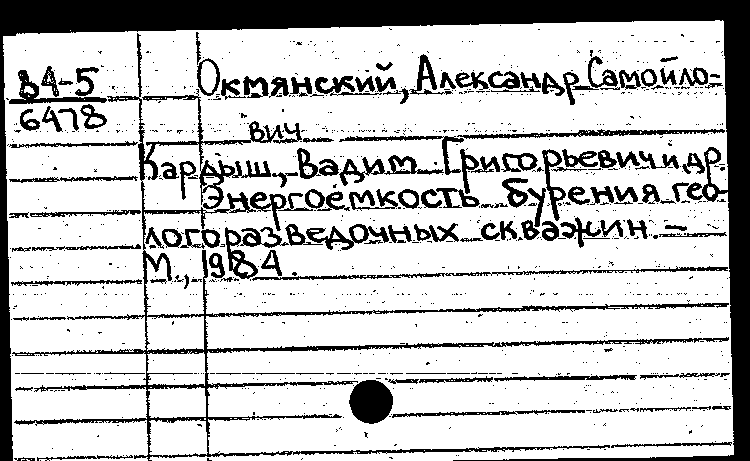 84-5
6478
Окмянский, Александр Самойло=
вич
Кардыш, Вадим Григорьевич и др.
Энергоёмкость бурения гео-
логоразведочных скважин. –
М., 1984.